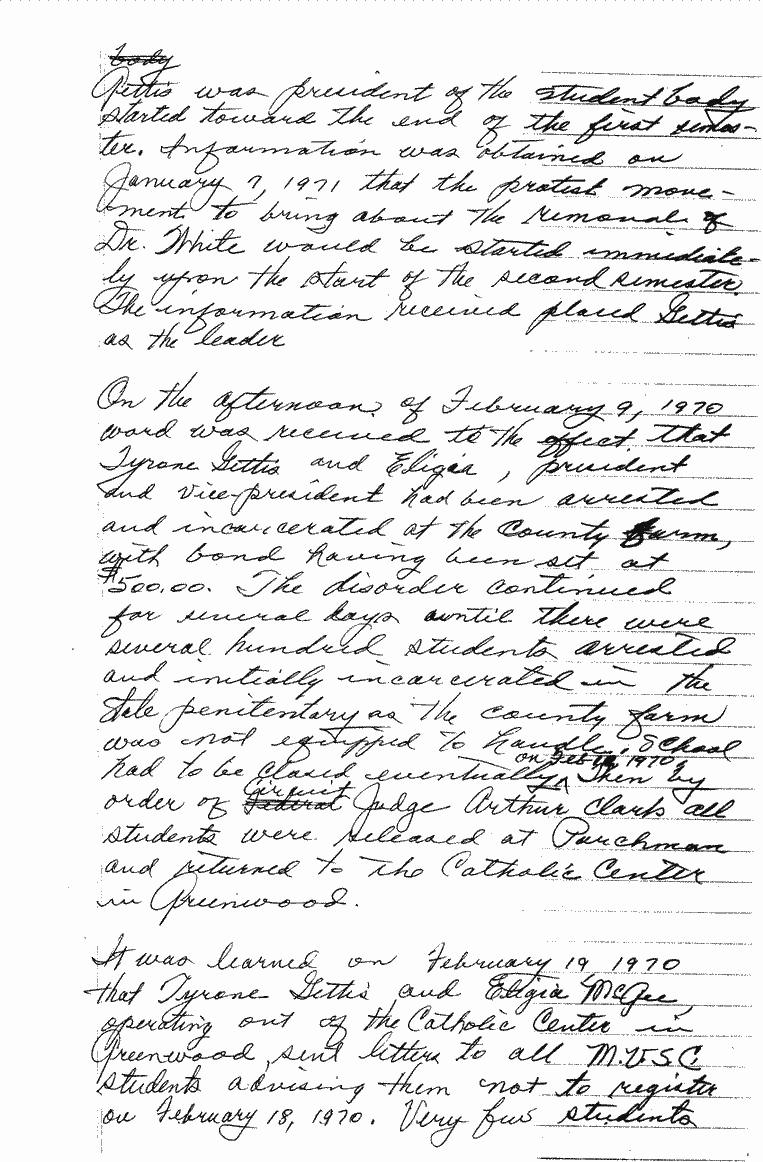 body
Gettis was president of the student body
started toward the end of the first semes-
ter. Information was obtained on
January 7, 1971 that the protest move-
ment to bring about the removal of
Dr. White would be started immediate-
ly upon the start of the second semester.
The information received placed Gettis
as the leader
On the afternoon of February 9, 1970
word was received to the effect that
Tyrone Gettis and Eligia, president
and vice-president had been arrested
and incarcerated at the county farm,
with bond having been set at
$500.00. The disorder continued
for several days until there were
several hundred students arrested
and initially incarcerated in the
state penitentary as the county farm
was not equipped to handle. School
on Feb 1970
had to be closed eventually ^ Then by
Circuit
order of Federal Judge Arthur Clark all
students were released at Parchman
and returned to the Catholic Center
in Greenwood.
It was learned on February 19, 1970
that Tyrone Gettis and Eligia McGee,
operating out of the Catholic Center in
Greenwood, sent letters to all M.V.S.C.
students advising them not to register
on February 18, 1970. Very few students